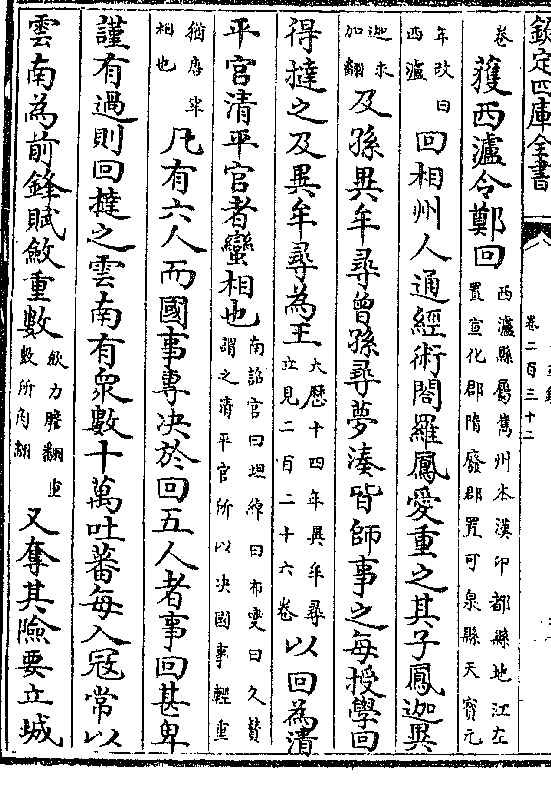 欽定四庫全書
卷二百三十二
卷獲西瀘令鄭回西瀘縣屬巂州本漢卭都縣地江左置宣化郡隋廢郡置可泉縣天寳元
年改曰西瀘回相州人通經術閤羅鳳愛重之其子鳳迦異
迦求加翻及孫異牟尋曾孫尋夢湊皆師事之每授學回
得撻之及異牟尋為王大厯十四年異牟尋立見二百二十六卷以回為清
平官清平官者蠻相也南詔官曰坦綽曰布燮曰久贊謂之清平官所以决國事輕重
猶唐宰相也凡有六人而國事專决於回五人者事回甚卑
謹有過則回撻之雲南有衆數十萬吐蕃每入冦常以
雲南為前鋒賦斂重數斂力贍翻重數所角翻又奪其險要立城